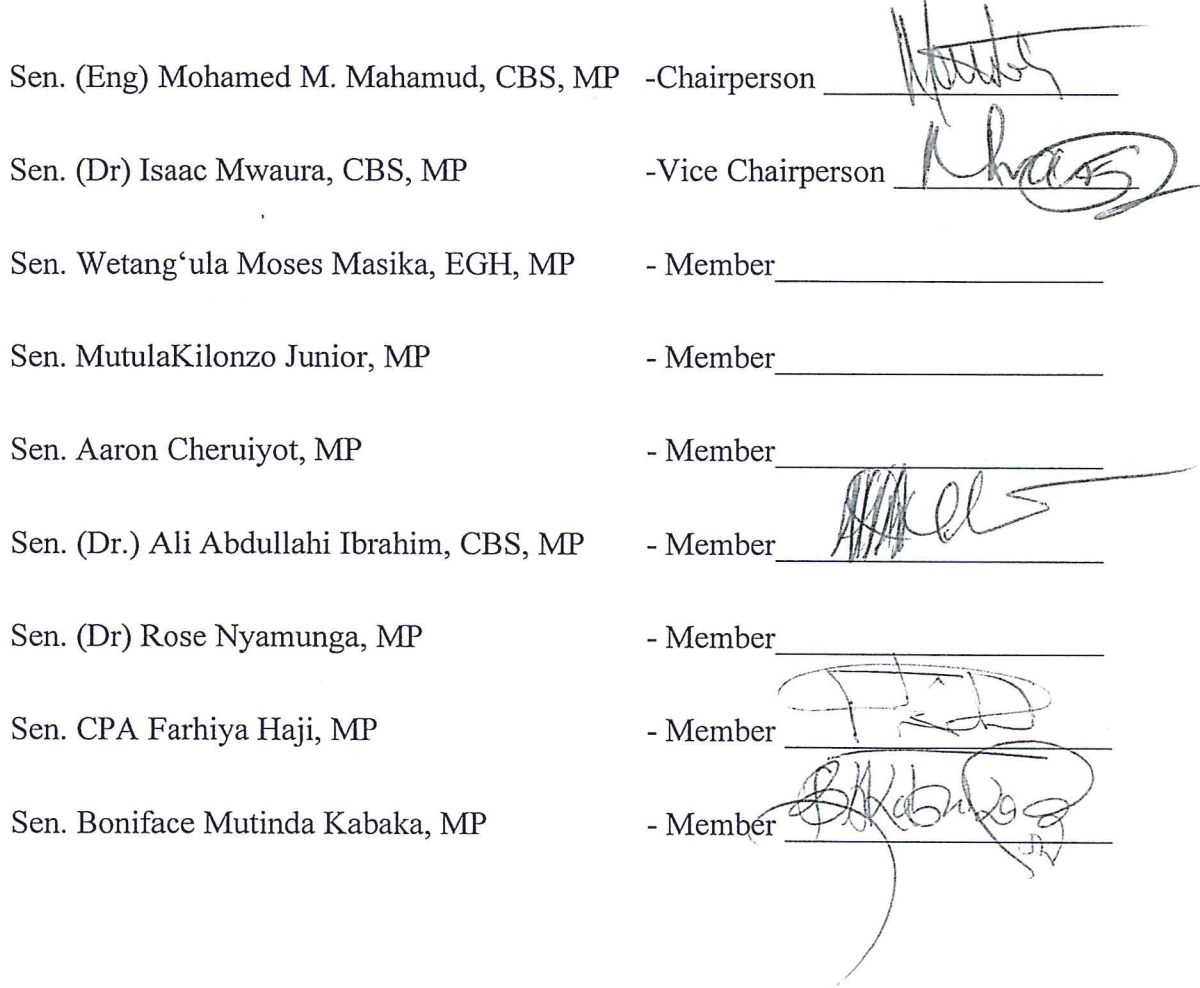 Sen. (Eng) Mohamed M. Mahamud, CBS, MP -Chairperson
Sen. (Dr) Isaac Mwaura, CBS, MP -Vice Chairperson
Sen. Wetang‘ula Moses Masika, EGH, MP - Member
Sen. MutulaKilonzo Junior, MP - Member
Sen. Aaron Cheruiyot, MP - Member
Sen. (Dr.) Ali Abdullahi Ibrahim, CBS, MP - Member
Sen. (Dr) Rose Nyamunga, MP - Member
Sen. CPA Farhiya Haji, MP - Member
Sen. Boniface Mutinda Kabaka, MP - Member